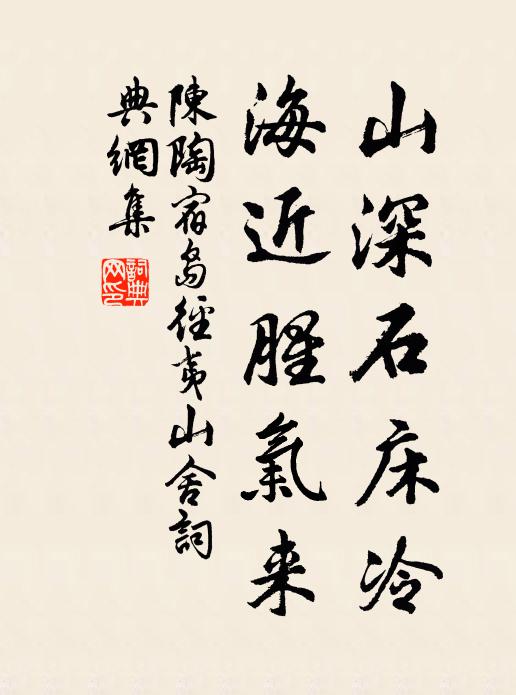 山深石床冷
海近腥氣来
陳陶宿島徑夷山舍詞
典網集
詞典
网印